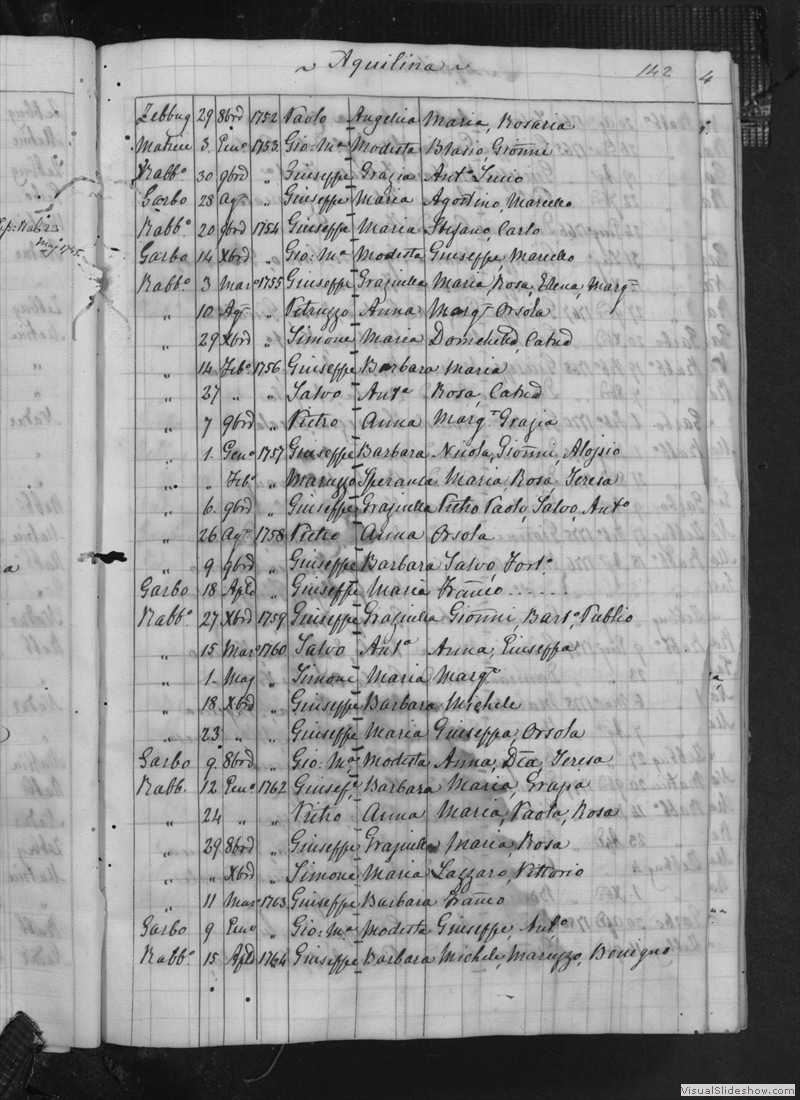 ~ Aquilina ~ 142 4
Zebbug 29 8brd 1752 Paolo Angelica Maria, Rosaria
3 Genº 1753 Gio: Mª Modesta Blasio, Gioñni
Rabbº 30 9brd „ Giuseppe Grazia Antº
Garbo 28 Agº „ Giuseppe Maria Agostino, Marcello
Rabbº 20 9brd 1754 Giuseppe Maria Stefano, Carlo
Garbo 14 Xbrd „ Gio: Mª Modesta Giuseppe, Marcello
Rabbº 3 Marº 1755 Giuseppe Graziulla Maria, Rosa, Elena, Margª
„ 10 Agº „ Petruzzo Anna Margª Orsola
„ 29 Xbrd „ Simone Maria
„ 14 Febº 1756 Giuseppe Barbara Maria
„ 27 „ „ Salvo Antª Rosa,
„ 7 9brd „ Pietro Anna Margª Grazia
„ 1. Genº 1757 Giuseppe Barbara Nicola, Gioñni, Aloysio
„ „ Febº „ Maruzzo Speranza Maria, Rosa, Teresa
„ 6. 9brd „ Giuseppe Graziulla Pietro Paolo, Salvo, Antº
„ 26 Agº 1758 Pietro Anna Orsola
„ 9 9brd „ Giuseppe Barbara Salvo, Fortº
Garbo 18 Apld „ Giuseppe Maria Frañco .....
Rabbº 27 Xbrd 1759 Giuseppe Graziulla Gioñni, Bartº Publio
„ 15 Marº 1760 Salvo Antª Anna, Giuseppa
„ 1. Mag „ Simone Maria Margª
„ 18 Xbrd „ Giuseppe Barbara Michele
„ 23 „ „ Giuseppe Maria Giuseppa, Orsola
Garbo 9. 8brd „ Gio: Mª Modesta Anna, Dca, Teresa
Rabb. 12 Genº 1762 Giusefª Barbara Maria, Grazia
„ 24 „ „ Pietro Anna Maria, Paola, Rosa
„ 29 8brd „ Giuseppe Graziulla Maria, Rosa
„ „ Xbrd „ Simone Maria Lazzaro, Vittorio
„ 11 Marº 1763 Giuseppe Barbara Frañco
Garbo 9 Genº „ Gio: Mª Modesta Giuseppe Antº
Rabbº 15 Apld 1764 Giuseppe Barbara Michele, Maruzzo, Benigno
VisualSlideshow.com